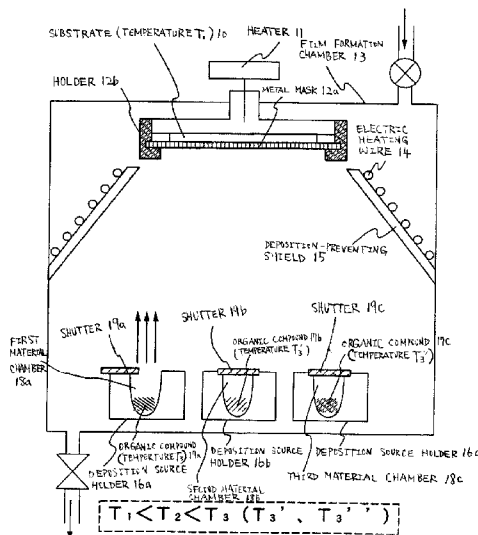 SUBSTRATE (TEMPERATURE T1) 10
HEATER 11
FILM FORMATION
CHAMBER 13
HOLDER 12b
METAL MASK 12a
ELECTRIC
HEATING
WIRE 14
DEPOSITION-PREVENTING
SHIELD 15
SHUTTER 19a
SHUTTER 19b
SHUTTER 19c
FIRST
MATERIAL
CHAMBER
18a
ORGANIC COMPOUND 17b
(TEMPERATURE T3')
ORGANIC COMPOUND 17c
(TEMPERATURE T3'')
ORGANIC COMPOUND
(TEMPORTURE T3) 17a
DEPOSITION SOURCE
HOLDER 16a
DEPOSITION SOURCE
HOLDER 16b
DEPOSITION SOURCE HOLDER 16c
SECOND MATERIAL
CHAMBER 18b
THIRD MATERIAL CHAMBER 18c
T1<T2<T3 (T3'、T3'')